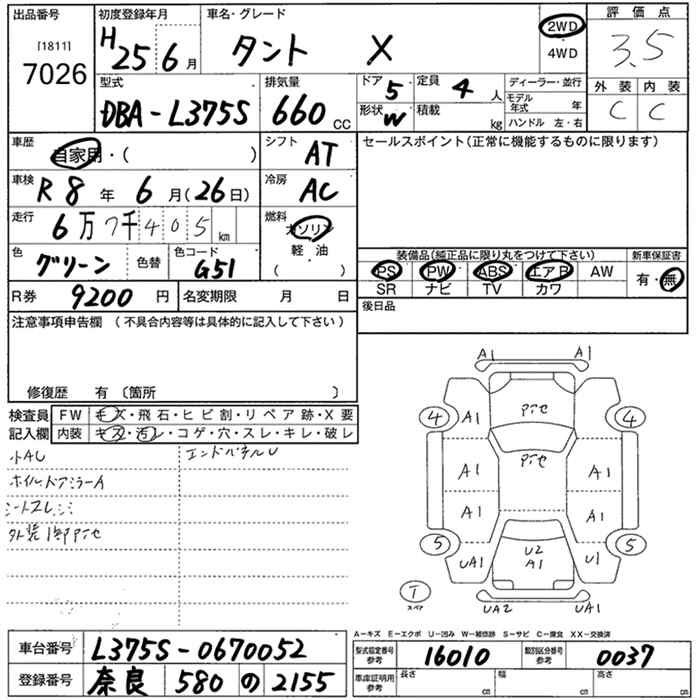 出品番号 初度登録年月 車名・グレード 評価点
[1811] 7026 H25 6月 タント X 2WD 4WD 3.5
型式 排気量 ドア 5 定員 4人 ディーラー・並行 外装 内装
DBA-L375S 660cc 形状 W 積載 kg モデル年式 年 ハンドル 左・右 C C
車歴 自家用・( ) シフト AT セールスポイント(正常に機能するものに限ります)
車検 R8年 6月(26日) 冷房 AC
走行 6万7千405km 燃料 ガソリン 軽・油 ( )
色 グリーン 色替 色コード G51 装備品(純正品に限り丸をつけて下さい) 新車保証書
PS PW ABS エアB AW 有・無
SR ナビ TV カワ
R券 9200円 名変期限 月 日 後日品
注意事項申告欄 (不具合内容等は具体的に記入して下さい)
修復歴 有 〔箇所 〕
検査員 FW キズ・飛石・ヒビ割・リペア跡・X要
記入欄 内装 キズ・汚レ・コゲ・穴・スレ・キレ・破レ
小AU エンドパネルU
ホイルドアミラーA
シートスレシミ
A1 A1
4 A1 A1 4
A1 A1
A1 A1
5 UA1 U2 A1 U1 5
T スペア UA2 UA1
A―キズ E―エクボ U―凹み W―補修跡 S―サビ C―腐食 XX―交換済
車台番号 L375S-0670052 型式指定番号 参考 16010 類別区分番号 参考 0037
登録番号 奈良 580 の 2155 車庫証明用 参考 長さ cm 幅 cm 高さ cm